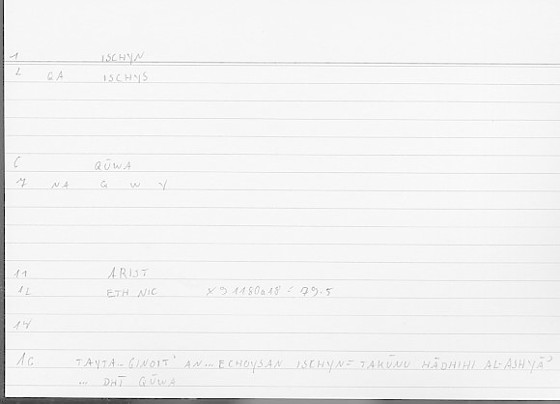 1 ISCHYN
2 QA ISCHYS
6 QŪWA
7 NA Q W Y
11 ARIST
12 ETH NIC X 9 1180a18 = 79.5
14
16 TAYTA... GINOIT' AN... ECHOYSAN ISCHYN = TAKŪNU HĀDHIHI AL-ASHYĀ'
... DHĪ QŪWA